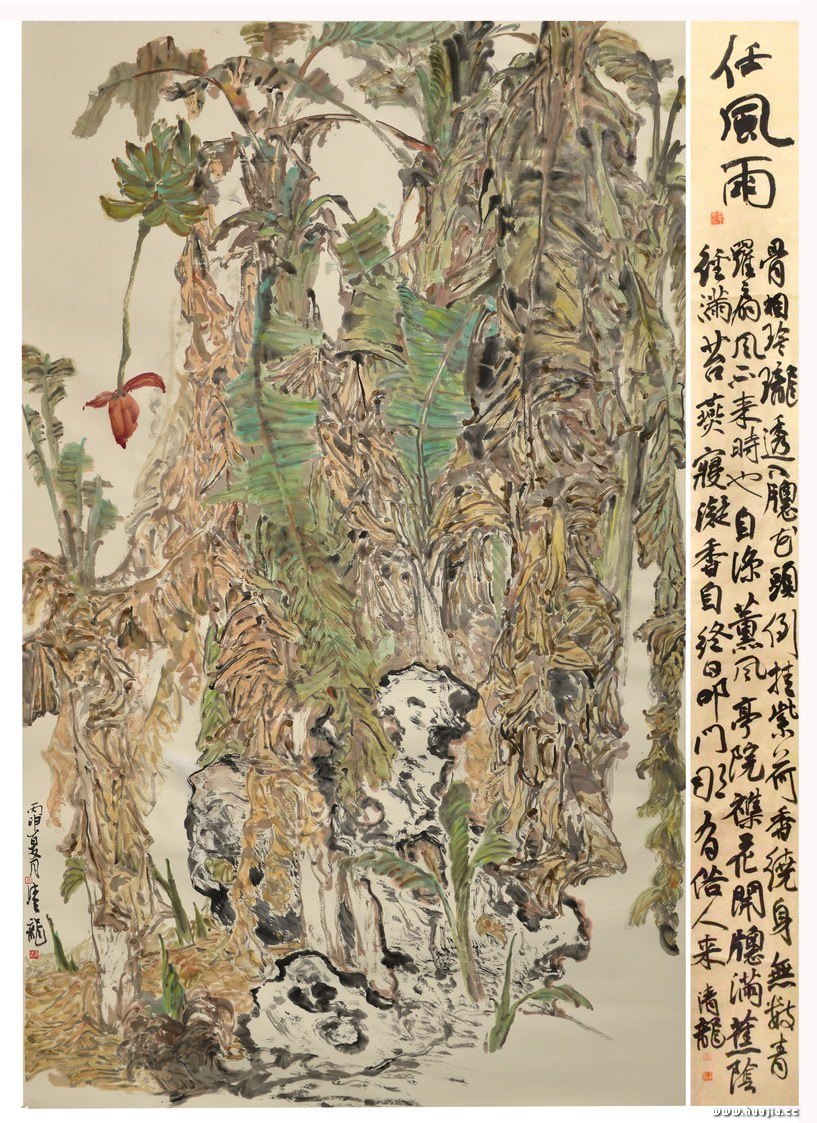 任風雨
骨相玲瓏透八牕花頭倒挂紫荷香繞身無數青
羅扇風不来時也自涼薰風亭院襍花開牕滿蕉陰
徑滿苔燕寢凝香自終日叩門那有俗人来 清龍
丙申夏月清龍
www.huajia.cc